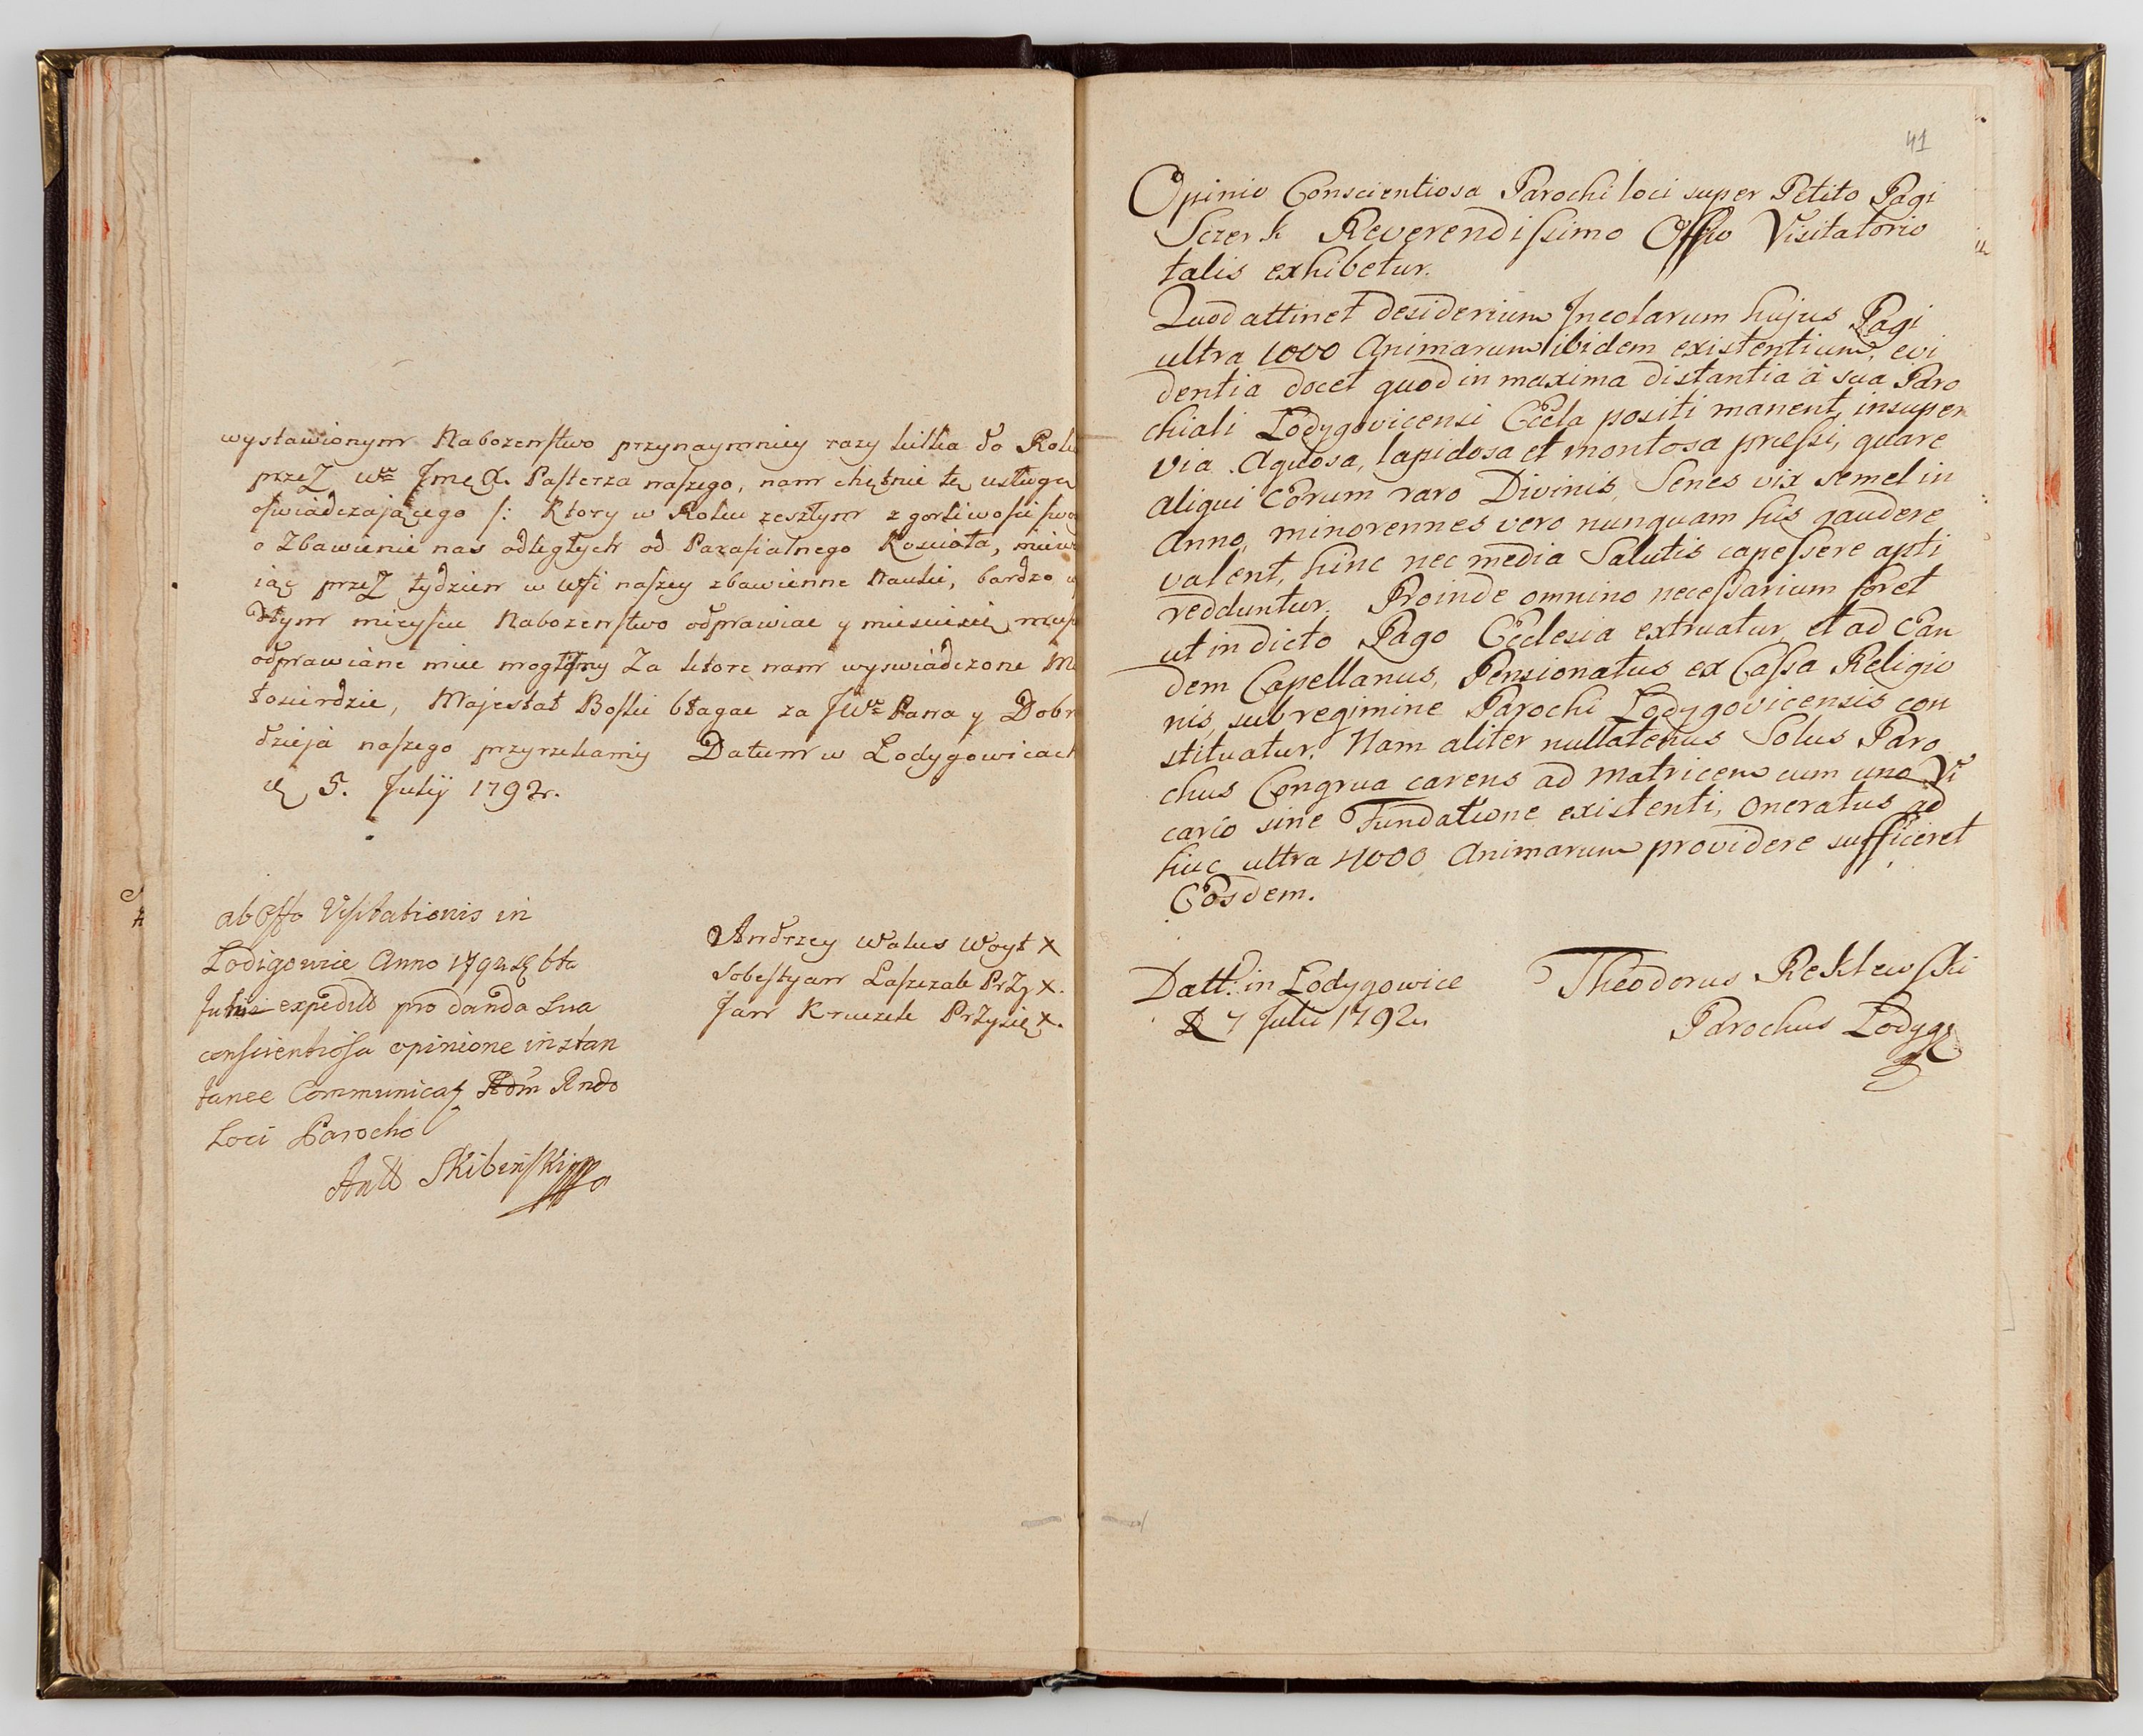 wystawionym Nabozenstwo przynaymniey razy kilka do Roku
przez Wo Jmę X. Pasterza naszego, nam chętnie tę usługę
oswiadczaiącego /: Ktory w Roku zeszłym z gorliwosci swo
o Zbawienie nas odległych od Parafialnego Koscioła, miew
iąc przez tydzien w wsi naszey zbawienne Nauki, bardzo
tym mieyscu Nabozenstwo odprawiac y miescie się
odprawiane miec moglismy Za ktore nam wyswiadczone Mi
łosierdzie, Majestat Boski błagac za JWo Pana y Dobr
dzieja naszego przyrzekamy Datum w Lodygowicach
d 5. Julij 1792r.
ab Offo Visitationis in
Lodigowice Anno 1792 d 6ta
Julii expeditt pro danda sua
conscientiosa opinione instan
tanee Communicat Rndo
Loci Parocho
Antt Skibinski
Andrzey Walus Woyt X
Sobestyan Laszczak Przy X.
Jan Kruczek Przysię X.
41
Opinio Conscientiosa Parochi loci super Petito Pagi
Sczerk Reverendissimo Offio Visitatorio
talis exhibetur.
Quod attinet desiderium Incolarum hujus Pagi
ultra 1000 Animarum ibidem existentium, evi
dentia docet quod in maxima distantia à sua Paro
chiali Lodygovicensi Eccla positi manent, insuper
via Aquosa, lapidosa et montosa praessi, quare
aliqui eorum raro Divinis, Senes vix semel in
Anno, minorennes vero nunquam his gaudere
valent, hinc nec media Salutis capessere apti
redduntur. Proinde omnino necessarium foret
ut in dicto Pago Ecclesia extruatur, et ad ean
dem Capellanus, Pensionatus ex Cassa Religio
nis, sub regimine Parochi Lodygovicensis con
stituatur. Nam aliter nullatenus Solus Paro
chus Congrua carens ad matricem cum uno Vi
cario sine Fundatione existenti, oneratus ad
huc ultra 4000 Animarum providere sufficeret
Eosdem.
Datt. in Lodygowice
D 7 Julii 1792.
Theodorus Reklewski
Parochus Lodyg